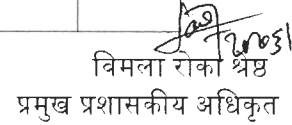 विमला रोका श्रेष्ठ
प्रमुख प्रशासकीय अधिकृत